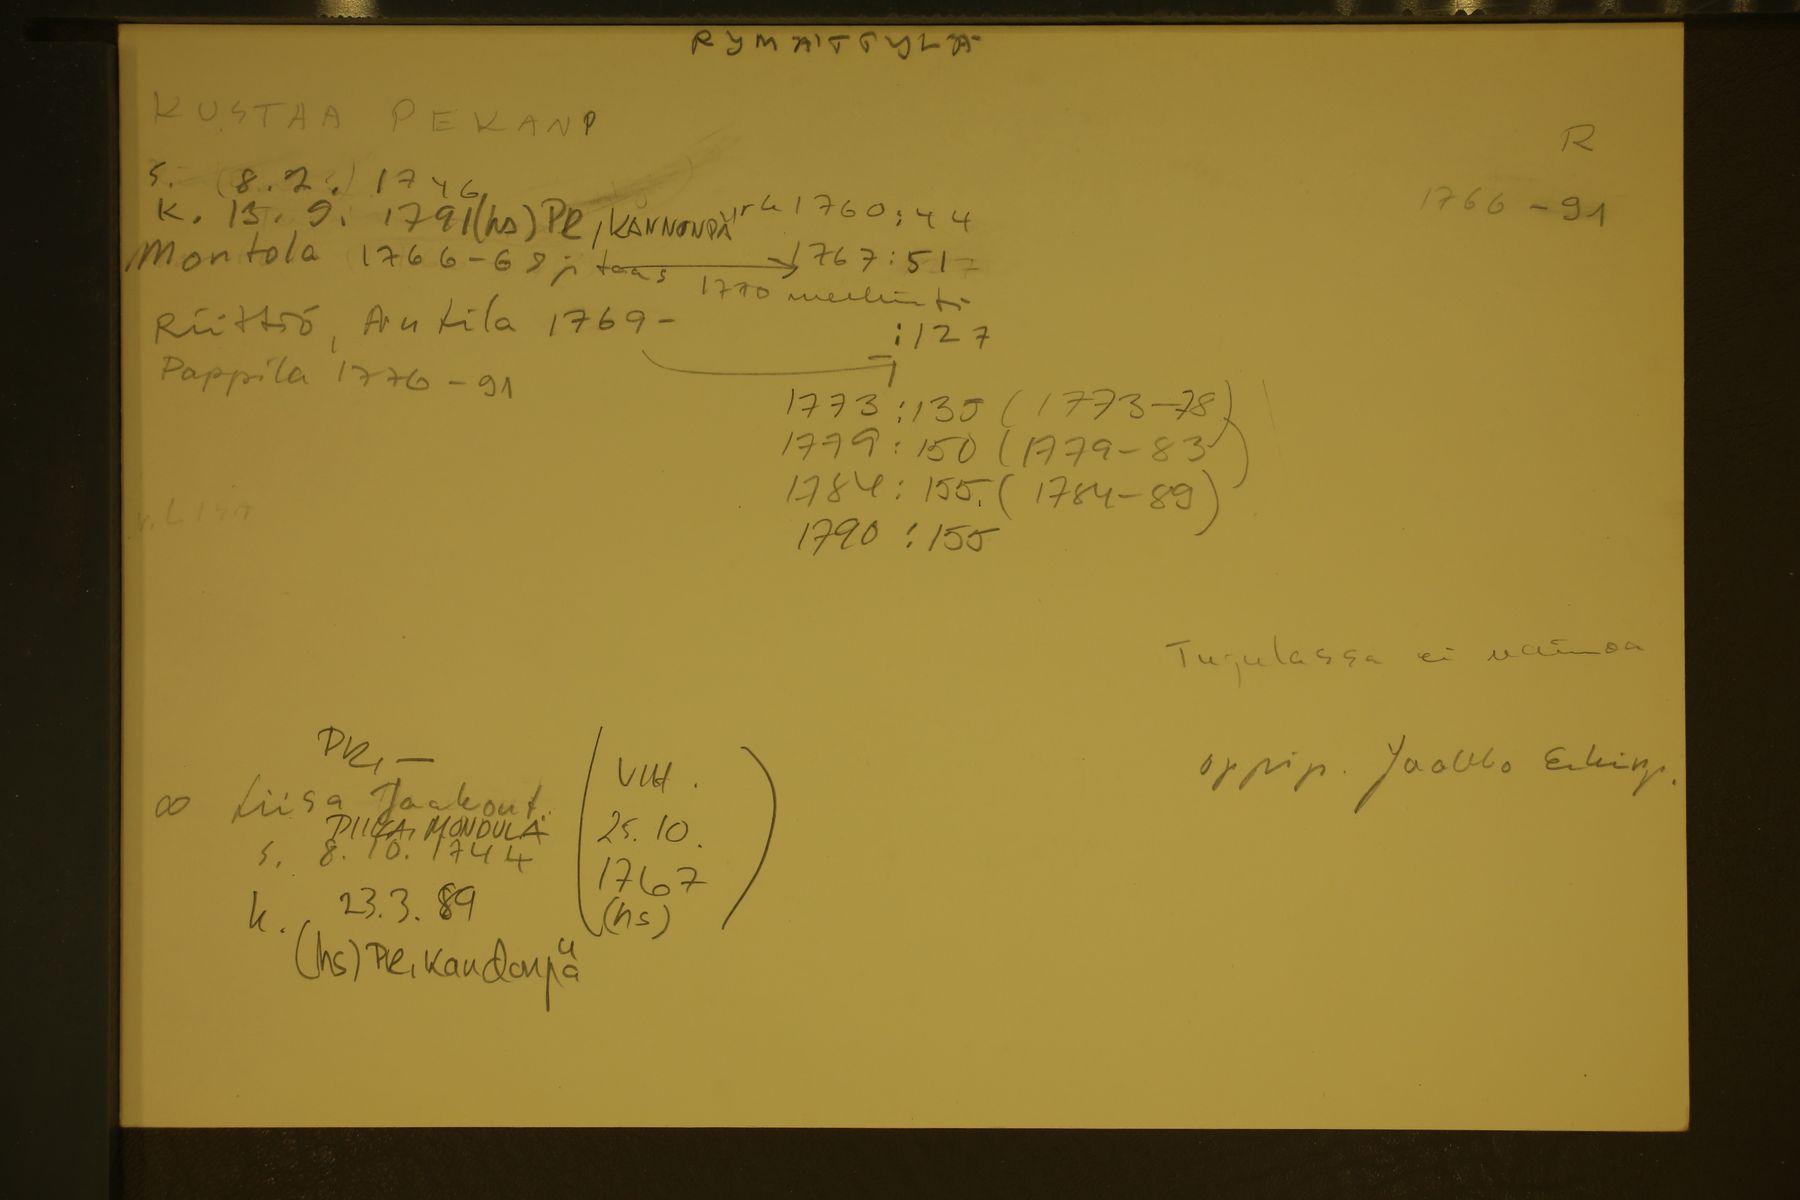 RYMÄTTYLÄ
KUSTAA PEKANP
R
s. (8.2.) 1746
1766-91
k. 13.9. 1791 (hs) PR, KANNONPÄ rk 1760:44
Montola 1766-68 ja taas 1767:51
1770 merkintä
Riittiö, Anttila 1769- :127
Pappila 1776-91
1773:135 (1773-78)
1779:150 (1779-83)
1784:155. (1784-89)
v. LISA
1790:155
ei vaimoa
PR, -
oppip. Jaakko Erkinp.
∞ Liisa Jaakont.
PIIKA, MONDULA
s. 8.10.1744
k. 23.3.89
(hs) PR, Kandonpä
(VIH.
25.10.
1767
(hs))